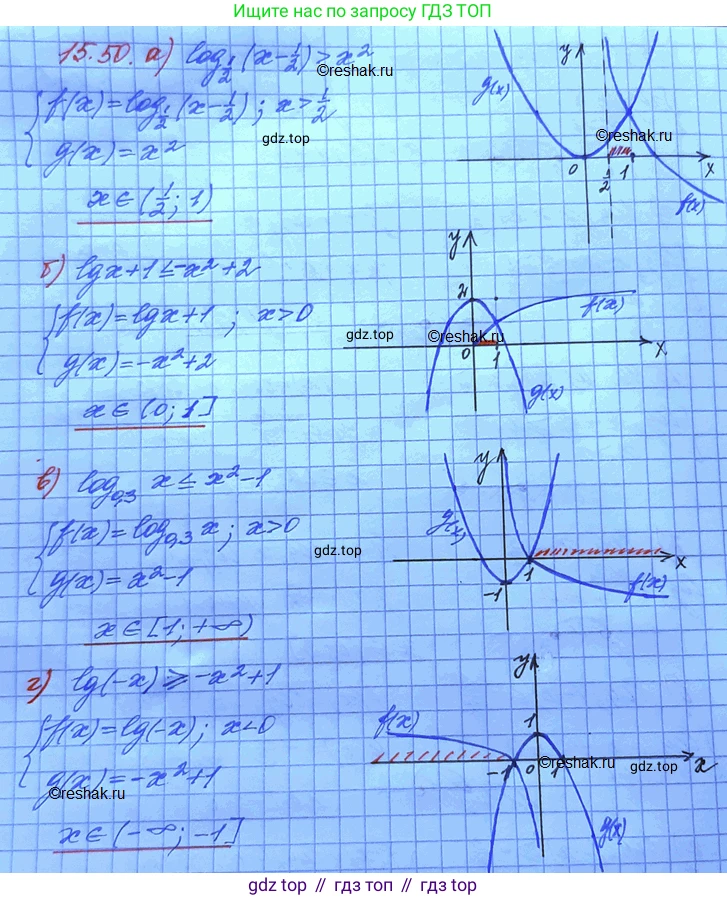 Ищите нас по запросу ГДЗ ТОП
15.50. а) log_{1/2}(x-1/2)>x²
©reshak.ru
{ f(x)=log_{1/2}(x-1/2); x>1/2
g(x)=x²
gdz.top
x∈(1/2; 1)
y
g(x)
©reshak.ru
0 1/2 1 x
f(x)
б) lgx+1≤-x²+2
{ f(x)=lgx+1 ; x>0
g(x)=-x²+2
x∈(0; 1]
y
2
f(x)
gdz.top
©reshak.ru
0 1 x
g(x)
в) log_{0,3} x≤x²-1
{ f(x)=log_{0,3} x; x>0
g(x)=x²-1
gdz.top
x∈[1; +∞)
y
g(x)
1 x
-1
f(x)
г) lg(-x)≥-x²+1
{ f(x)=lg(-x); x<0
g(x)=-x²+1
©reshak.ru
x∈(-∞; -1]
y
f(x)
1
-1 0 1 gdz.top x
©reshak.ru
g(x)
gdz.top // гдз топ // gdz.top